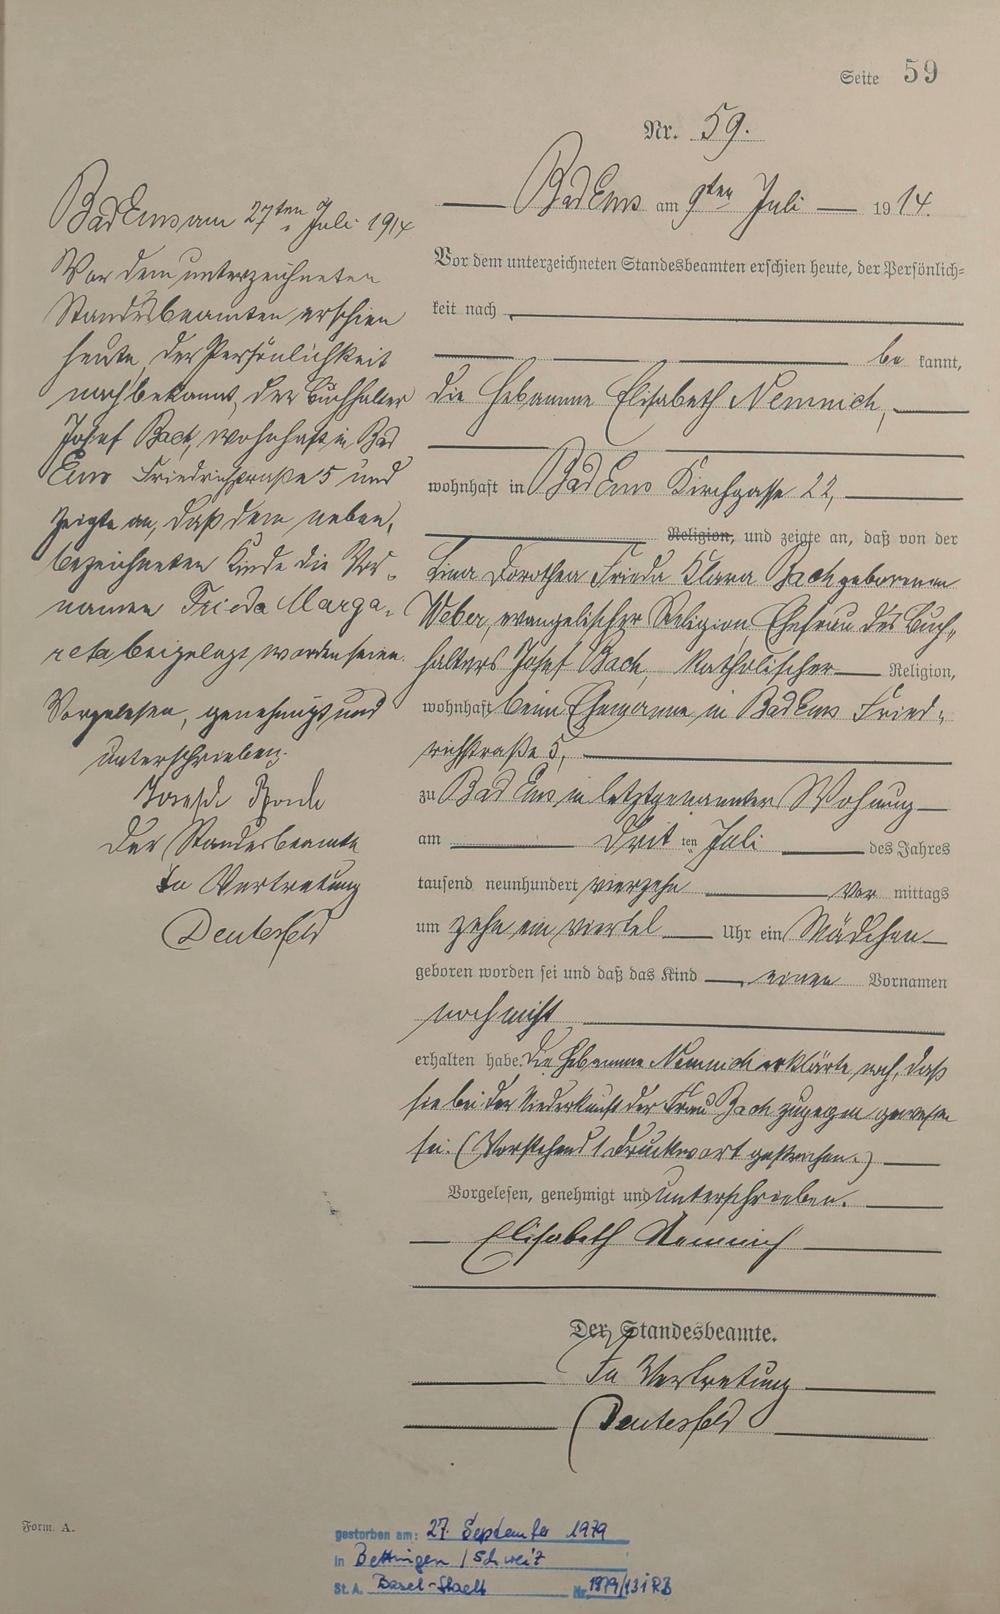 Seite 59
Nr. 59.
Bad Ems am 9ten Juli 1914.
Vor dem unterzeichneten Standesbeamten erschien heute, der Persönlich=
keit nach
be kannt,
die Hebamme Elisabeth Nemnich,
wohnhaft in Bad Ems Kirchgasse 22,
Religion, und zeigte an, daß von der
Lina Dorothea Frieda Klara Bach geborenen
Weber, evangelischer Religion, Ehefrau des Buch-
halters Josef Bach, katholischer Religion,
wohnhaft beim Ehemanne in Bad Ems Fried-
richstraße 5,
zu Bad Ems in letztgenannter Wohnung
am Drit ten Juli des Jahres
tausend neunhundert vierzehn Vor mittags
um zehn ein viertel Uhr ein Mädchen
geboren worden sei und daß das Kind einen Vornamen
noch nicht
erhalten habe. Die Hebamme Nemnich erklärte noch, daß
sie bei der Niederkunft der Frau Bach zugegen gewesen
sei. (Vorstehend 1 Druckwort gestrichen.)
Vorgelesen, genehmigt und unterschrieben.
Elisabeth Nemnich
Der Standesbeamte.
In Vertretung
Deutesfeld
Bad Ems am 27ten Juli 1914
Vor dem unterzeichneten
Standesbeamten erschien
heute, der Persönlichkeit
nach bekannt, der Buchhalter
Josef Bach, wohnhaft in Bad
Ems Friedrichstraße 5 und
zeigte an, daß dem neben-
bezeichneten Kinde die Vor-
namen Frieda Marga-
reta beigelegt worden seien.
Vorgelesen, genehmigt und
unterschrieben.
Joseph Bach
Der Standesbeamte
In Vertretung
Deutesfeld
Form. A.
gestorben am: 27. September 1979
in Bettingen / Schweiz
St. A. Basel-Stadt Nr. 1979/131 RB